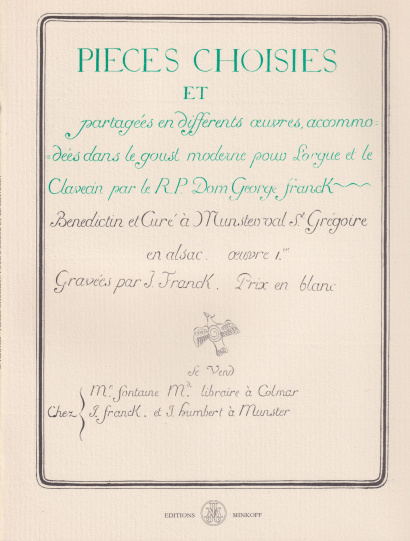 PIECES CHOISIES
ET
partagées en differents œuvres, accommo=
=dées dans le goust moderne pour L'orgue et le
Clavecin par le R.P. Dom George franck
Benedictin et Curé à Munster val St Grégoire
en alsac. œuvre 1.er
Gravées par J. Franck. Prix en blanc
Se Vend
Chez
Mr. fontaine Md. libraire à Colmar
J. franck. et J. humbert à Munster
EDITIONS MINKOFF